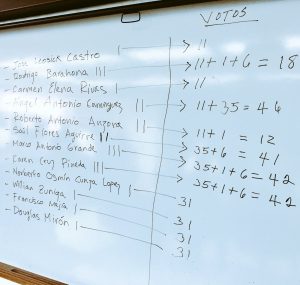 VOTOS
- José Leonica Castro I → 11
- Rodrigo Barahona III → 11+1+6 = 18
- Carmen Elena Rivas I → 11
- Angel Antonio Dominguez II → 11+35 = 46
- Roberto Antonio Anzora II → 11+1 = 12
- Saúl Flores Aguirre II → 35+6 = 41
- Marco Antonio Grande III → 35+1+6 = 42
- Caren Cruz Pineda III → 35+1+6 = 42
- Norberto Osmín Cunza Lopez I 31
- Willian Zuniga I 31
- Francisco Mejía I 31
- Douglas Mirón I 31